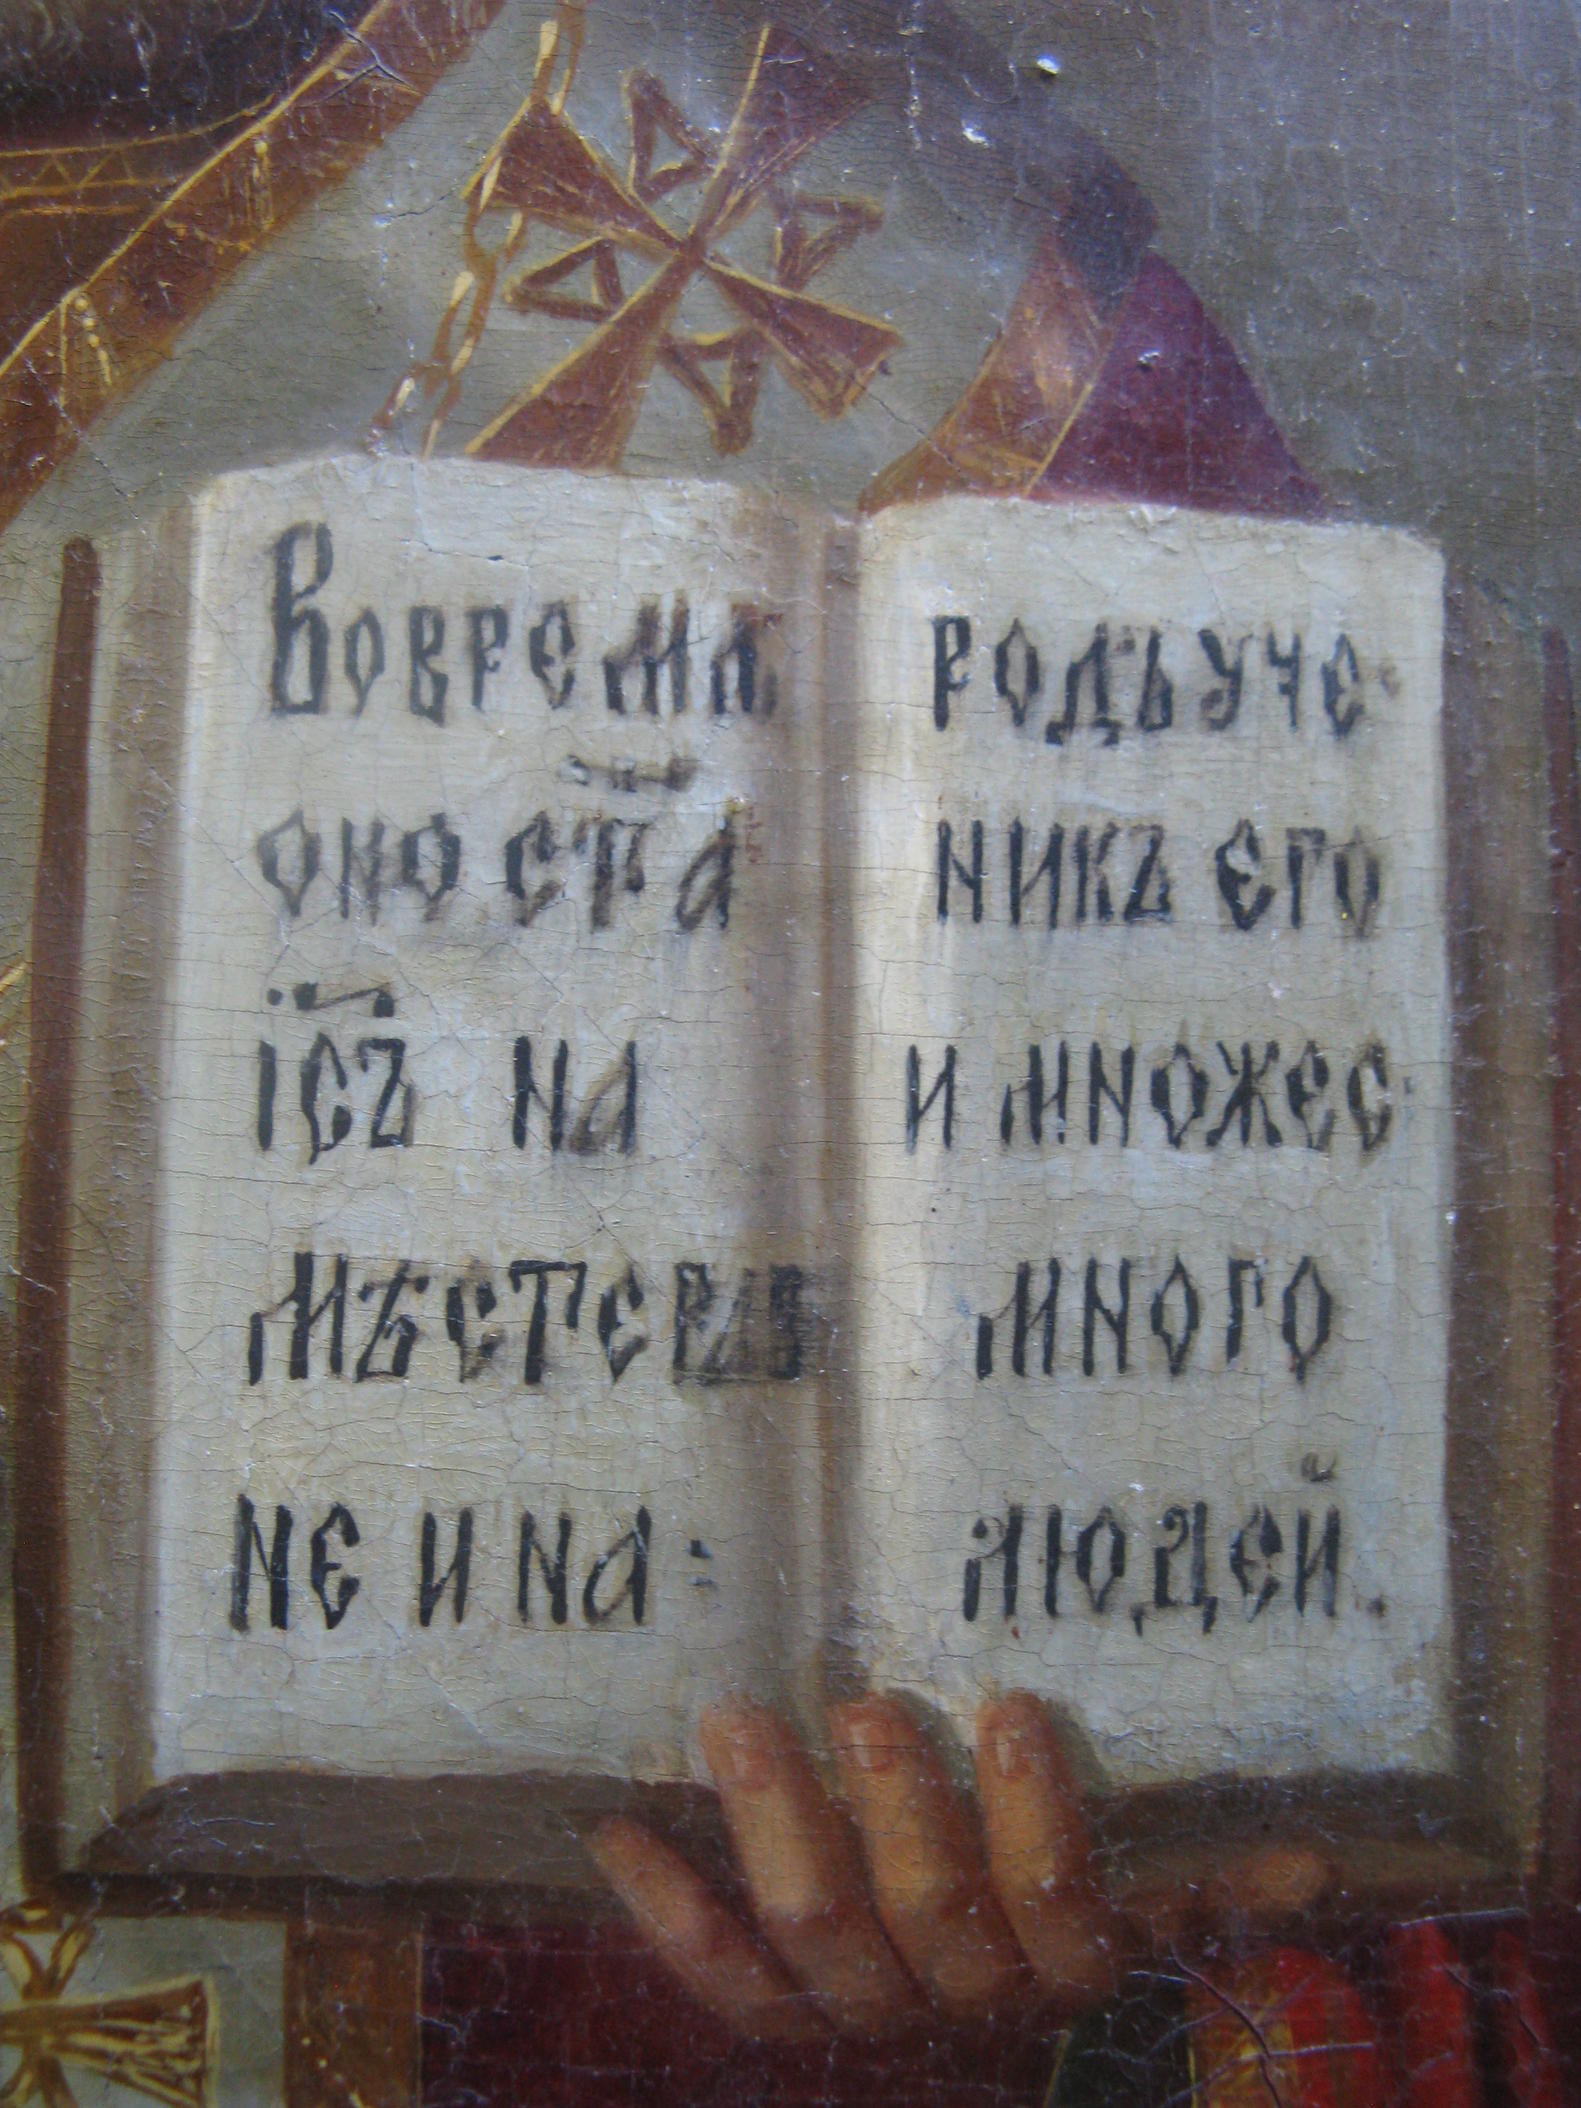 Вовремѧ
оно ста
Їсъ на
мѣстерав
не и на:
родъ уче
никъ его
и множес
много
людей.